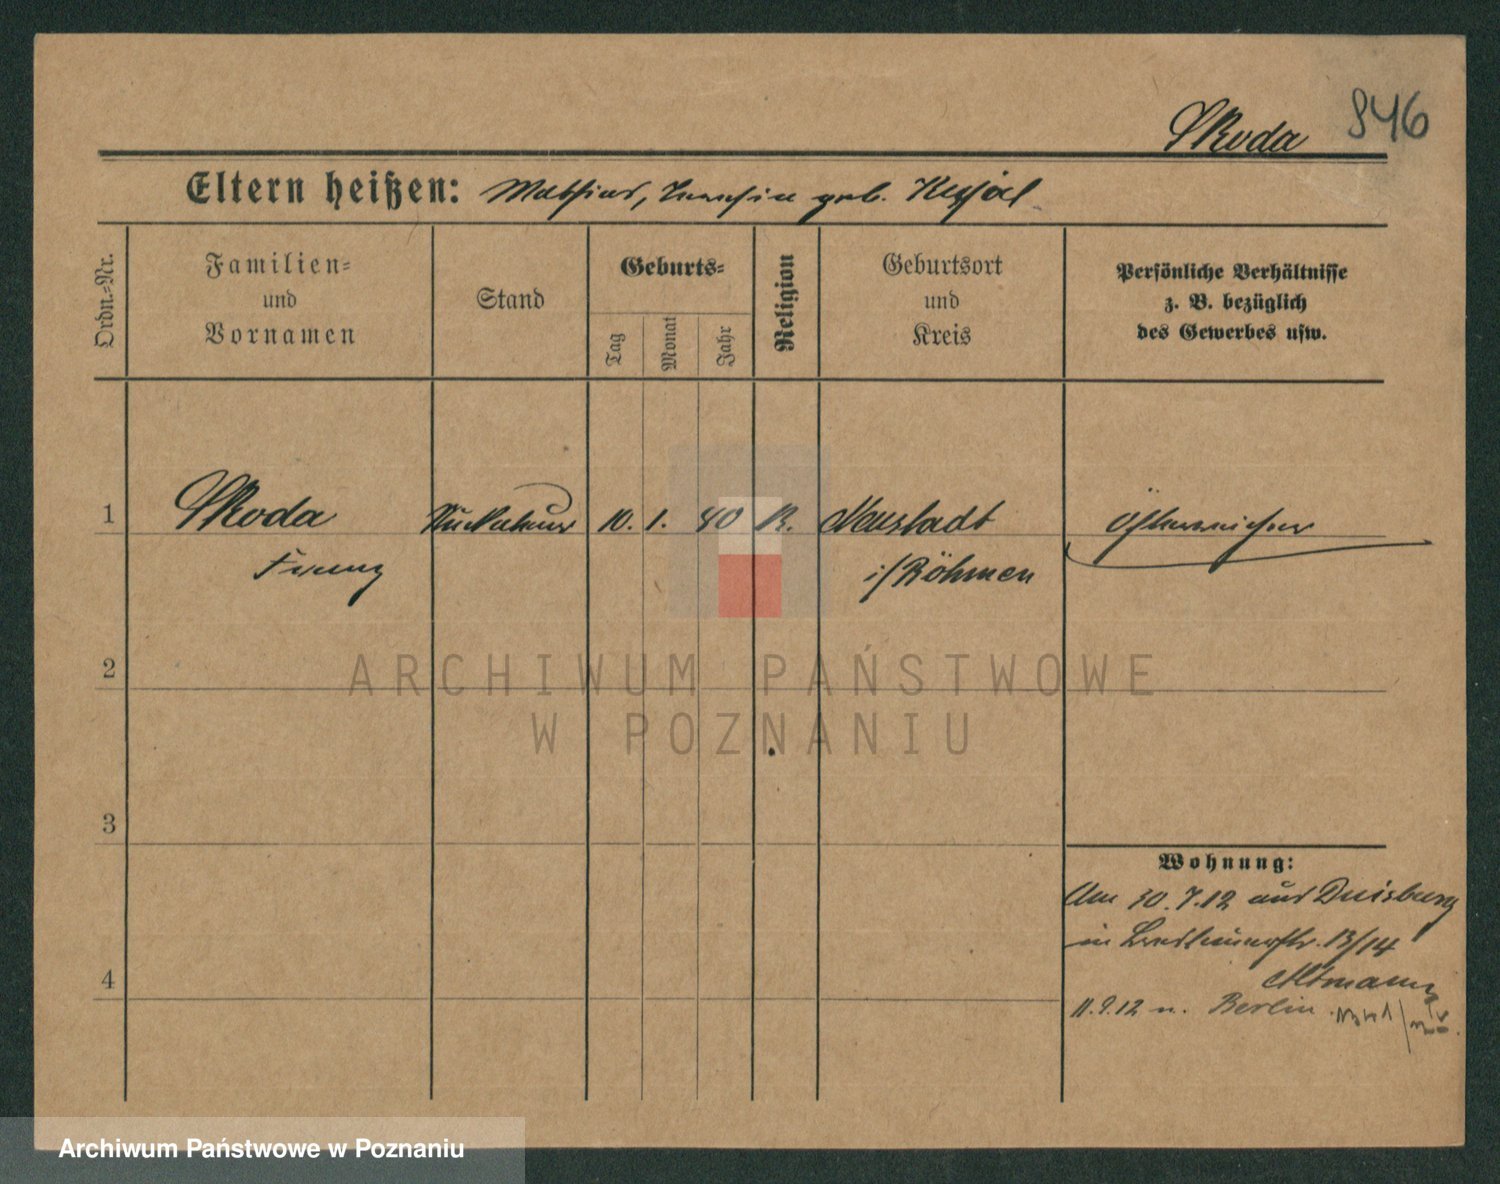 846
Skoda
Eltern heißen: Mathias, geb.
Ordn.=Nr.
Familien=
und
Vornamen
Stand
Geburts=
Tag
Monat
Jahr
Religion
Geburtsort
und
Kreis
Persönliche Verhältnisse
z. B. bezüglich
des Gewerbes usw.
1 Skoda 10. 1. 40 K. Neustadt Österreicher
Franz i/Böhmen
2
ARCHIWUM PAŃSTWOWE
W POZNANIU
3
Wohnung:
Am 30.7.12 aus Duisburg
in 13/14
4 Altmann
11.9.12 n. Berlin
Archiwum Państwowe w Poznaniu